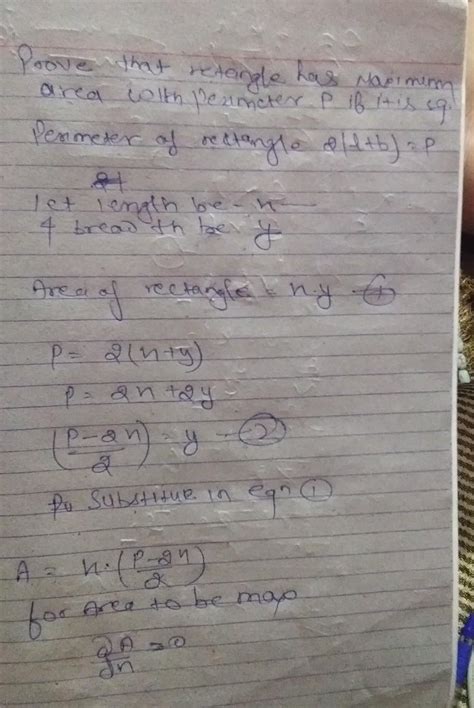 Proove that retangle has Maximum
area with perimeter P if it is sq.
Perimeter of rectangle 2(l+b) = P
let length be - x
& breadth be y
Area of rectangle = x.y - ①
P = 2(x+y)
P = 2x+2y
(P-2x/2) = y - ②
Substitue in eqn ①
A = x.(P-2x/2)
for Area to be max
∂A/∂x = 0